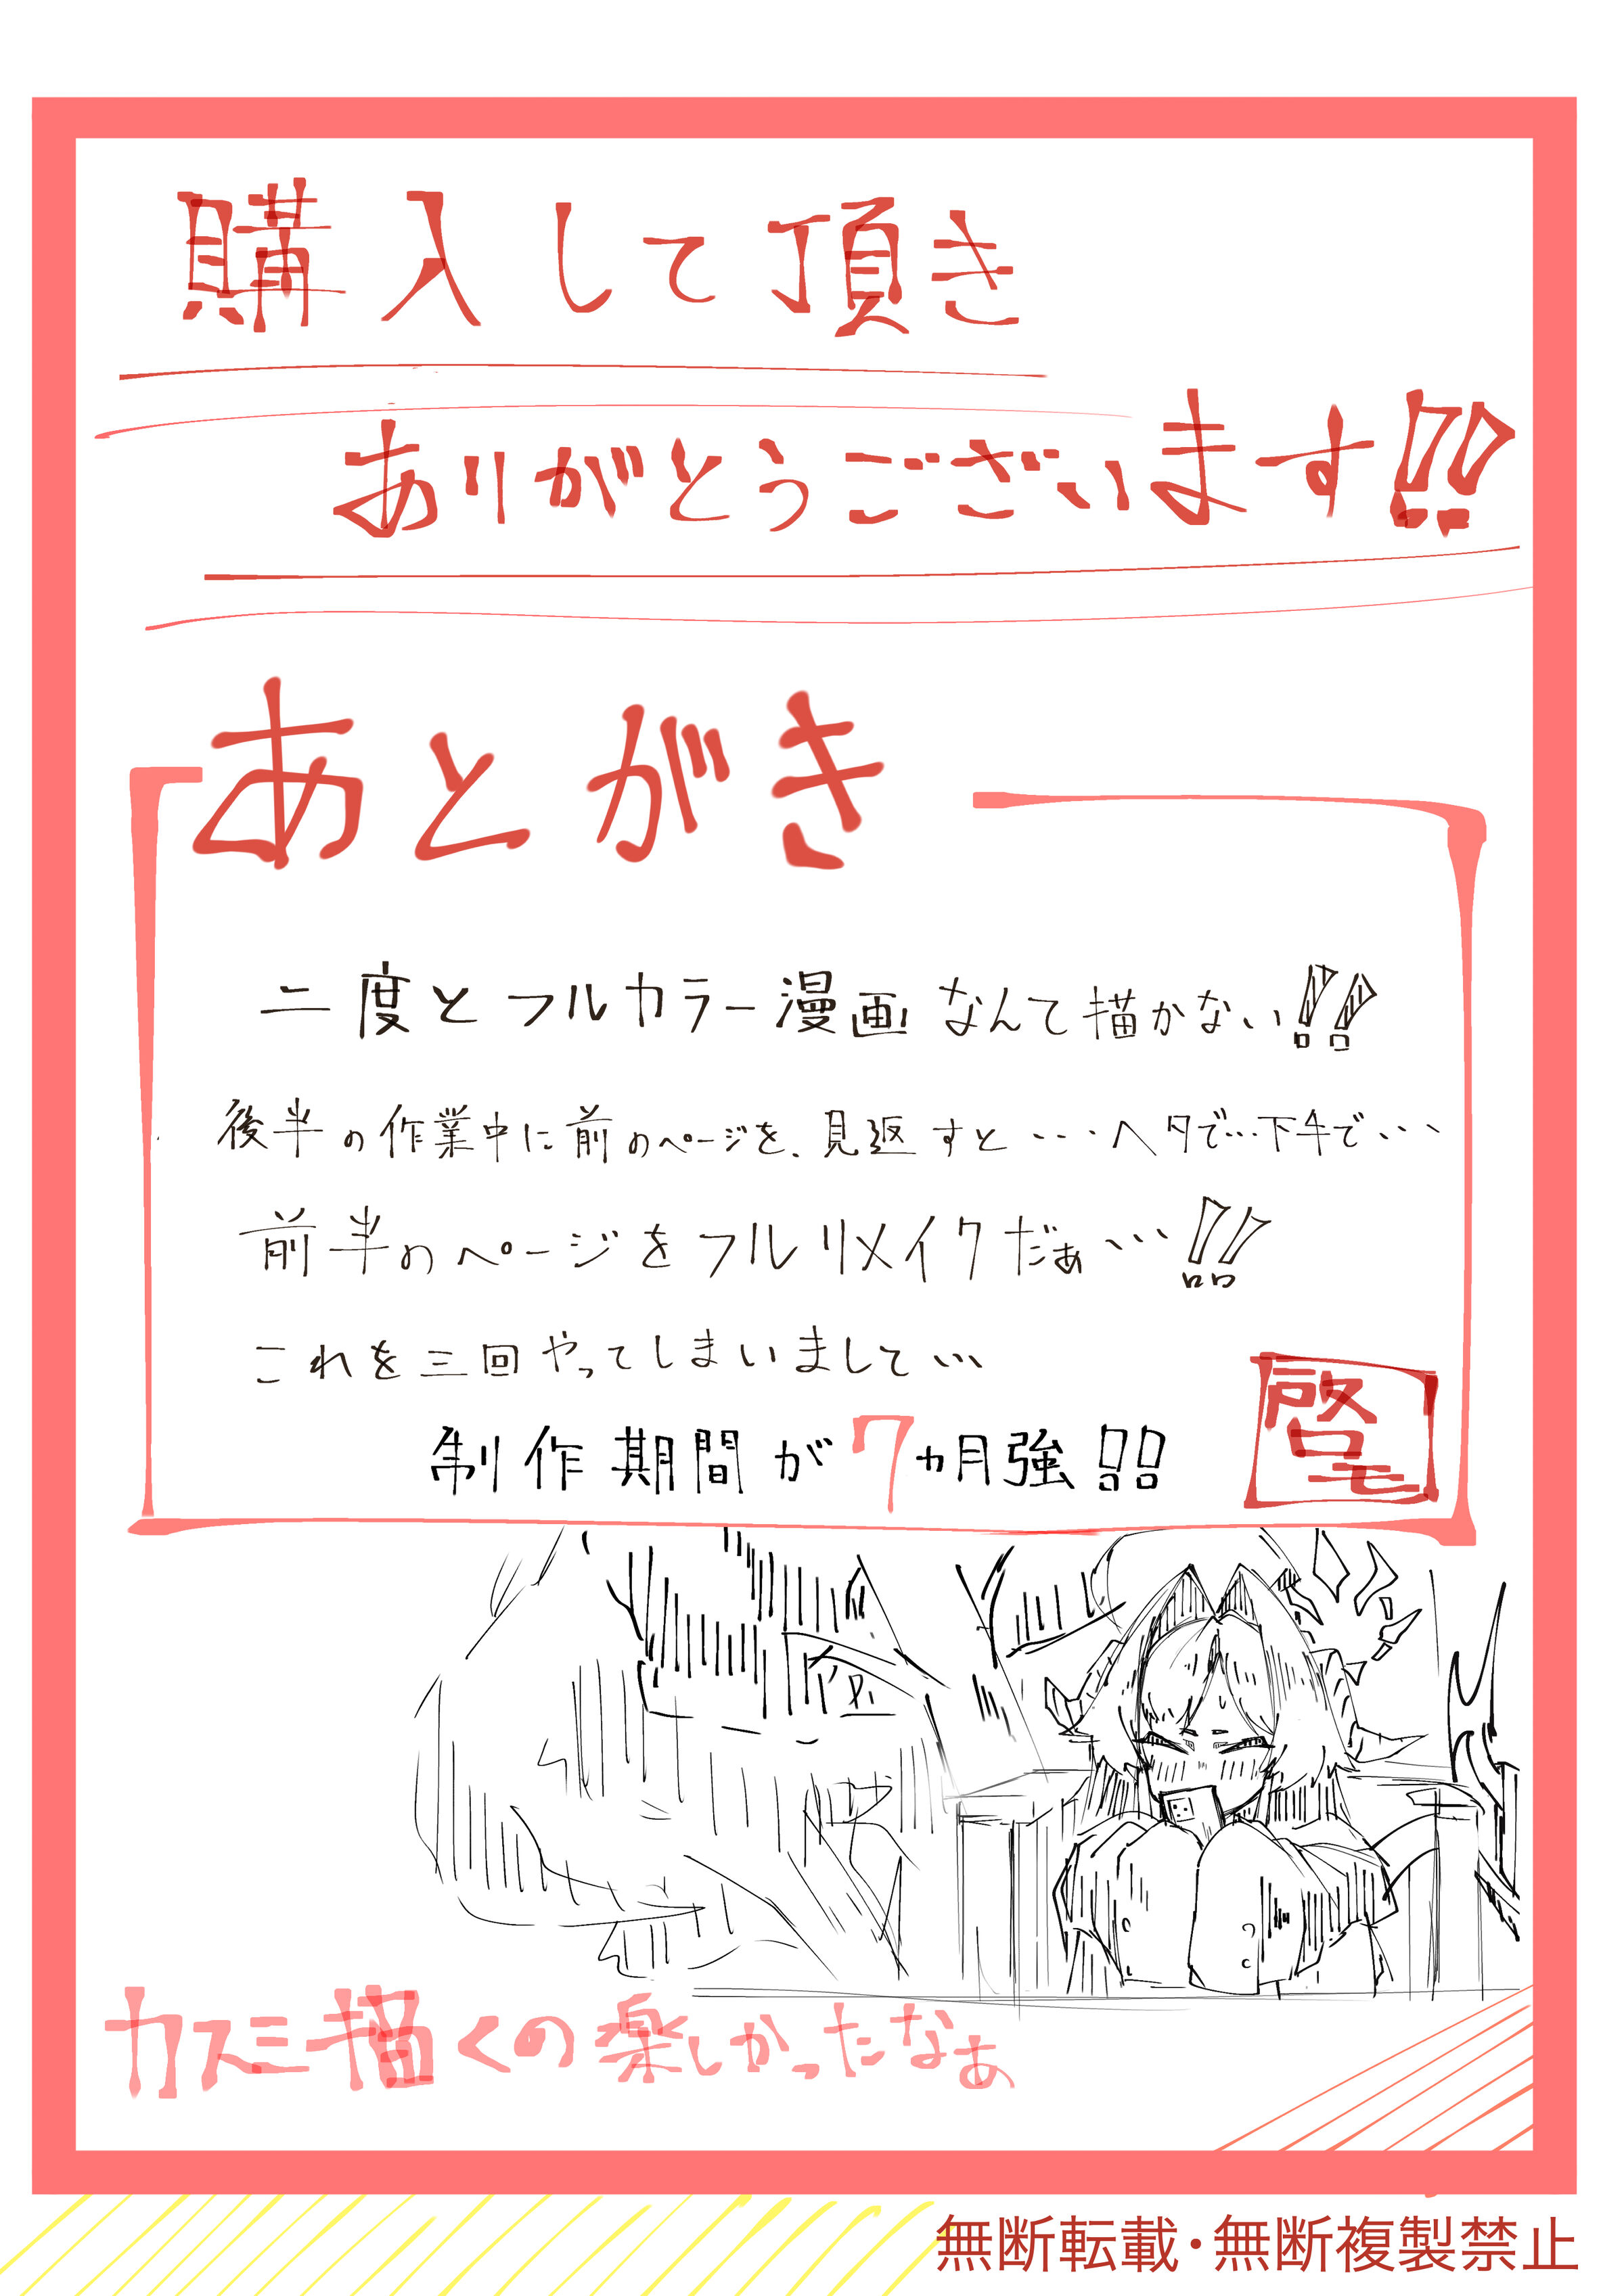 購入して頂き
ありがとうございます!!
あとがき
二度とフルカラー漫画なんて描かない!!
後半の作業中に前のページを、見返すと・・・ヘタで…下手で・・・
前半のページをフルリメイクだぁ…!!
これを三回やってしまいまして…
制作期間が7ヵ月強!!
カスミ描くの楽しかったなぁ
無断転載・無断複製禁止